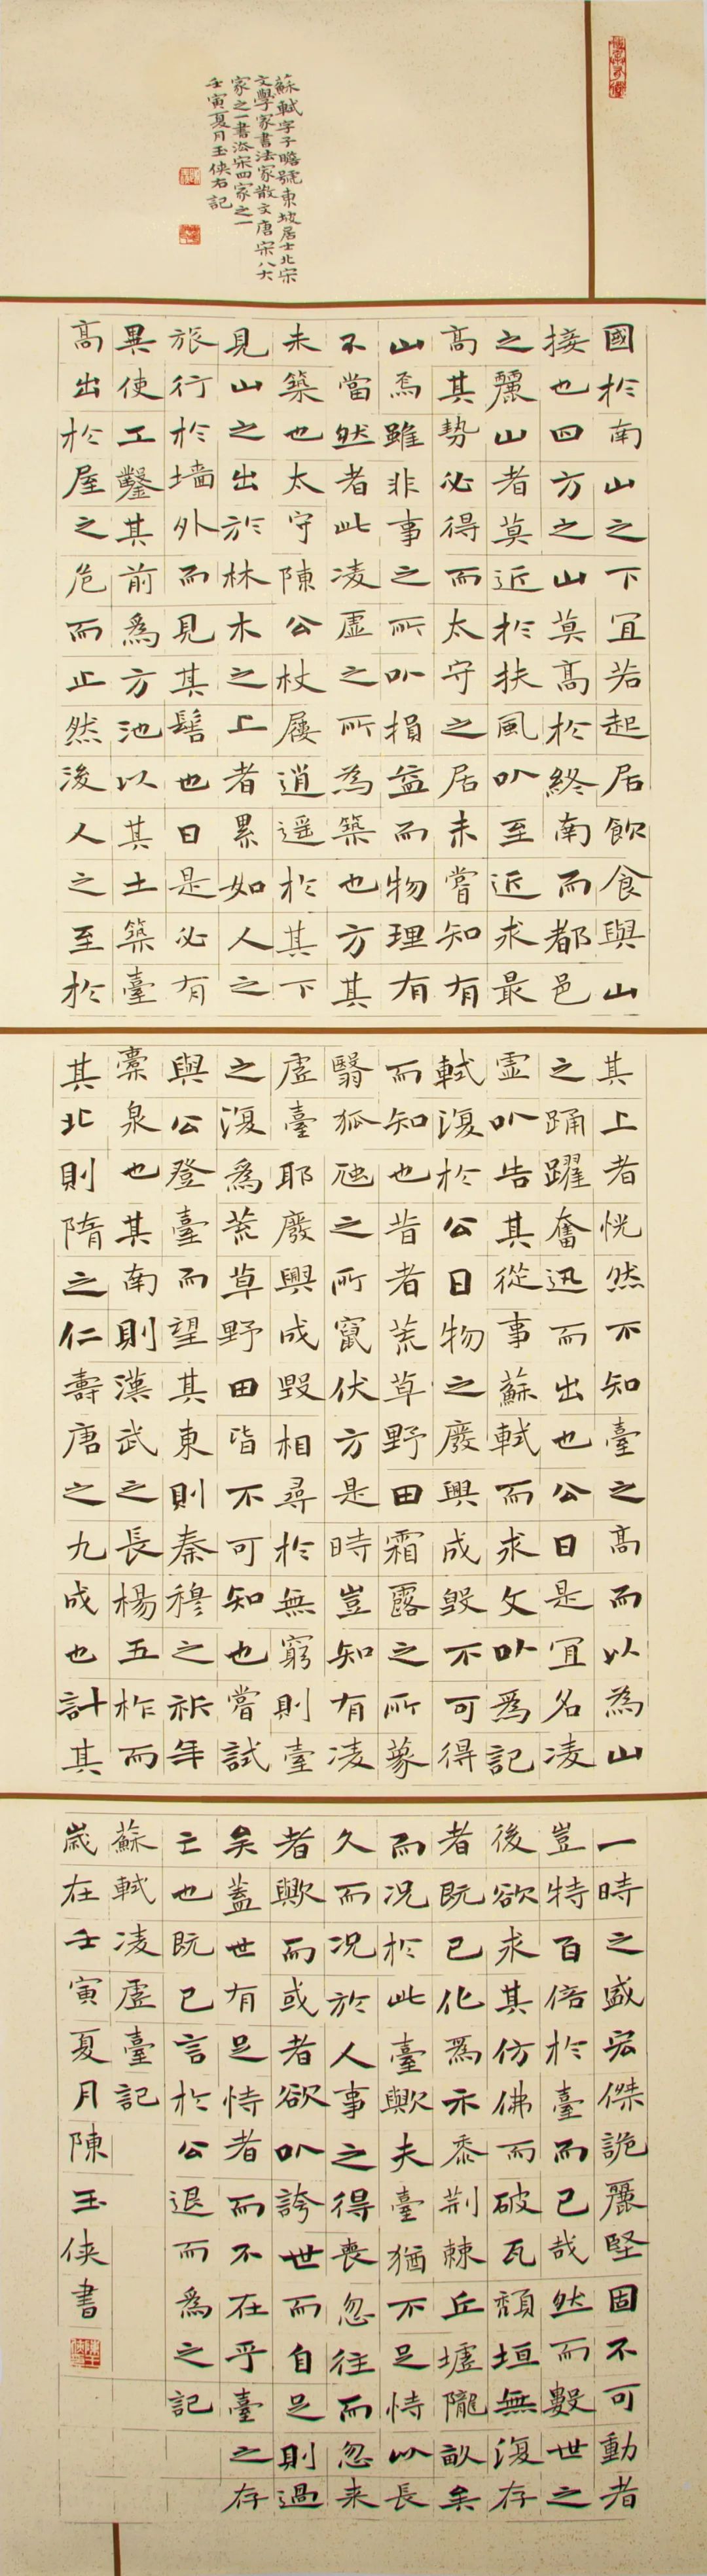 蘇軾字子瞻號東坡居士北宋
文學家書法家散文唐宋八大
家之一書法宋四家之一
壬寅夏月玉俠右記
國於南山之下宜若起居飲食與山
接也四方之山莫高於終南而都邑
之麗山者莫近於扶風以至近求最
高其勢必得而太守之居未嘗知有
山焉雖非事之所以損益而物理有
不當然者此凌虛之所為築也方其
未築也太守陳公杖屨逍遙於其下
見山之出於林木之上者累如人之
旅行於墙外而見其髻也曰是必有
異使工鑿其前爲方池以其土築臺
高出於屋之危而止然後人之至於
其上者恍然不知臺之高而以為山
之踊躍奮迅而出也公曰是宜名凌
虛以告其從事蘇軾而求文以爲記
軾復於公曰物之廢興成毀不可得
而知也昔者荒草野田霜露之所蒙
翳狐虺之所竄伏方是時豈知有凌
虛臺耶廢興成毀相尋於無窮則臺
之復爲荒草野田皆不可知也嘗試
與公登臺而望其東則秦穆之祈年
橐泉也其南則漢武之長楊五柞而
其北則隋之仁壽唐之九成也計其
一時之盛宏傑詭麗堅固不可動者
豈特百倍於臺而已哉然而數世之
後欲求其仿佛而破瓦頹垣無復存
者既已化爲禾黍荊棘丘墟隴畝矣
而况於此臺歟夫臺猶不足恃以長
久而况於人事之得喪忽往而忽来
者歟而或者欲以誇世而自足則過
矣蓋世有足恃者而不在乎臺之存
亡也既已言於公退而爲之記
蘇軾凌虛臺記
歲在壬寅夏月陳玉俠書